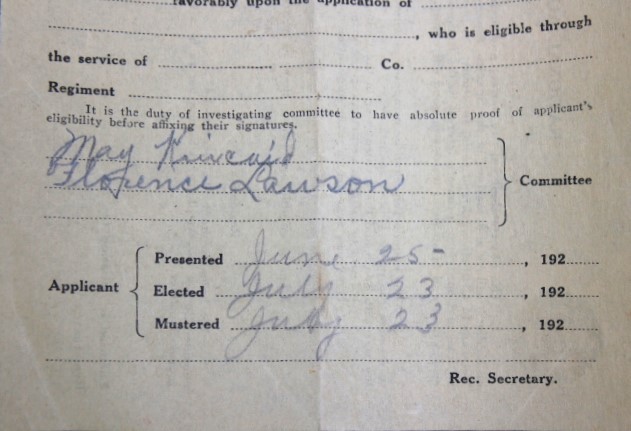 favorably upon the application of
, who is eligible through
the service of Co.
Regiment
It is the duty of investigating committee to have absolute proof of applicant's
eligibility before affixing their signatures.
May Kincaid
Florence Lawson
Committee
Applicant
Presented June 25- , 192
Elected July 23 , 192
Mustered July 23 , 192
Rec. Secretary.